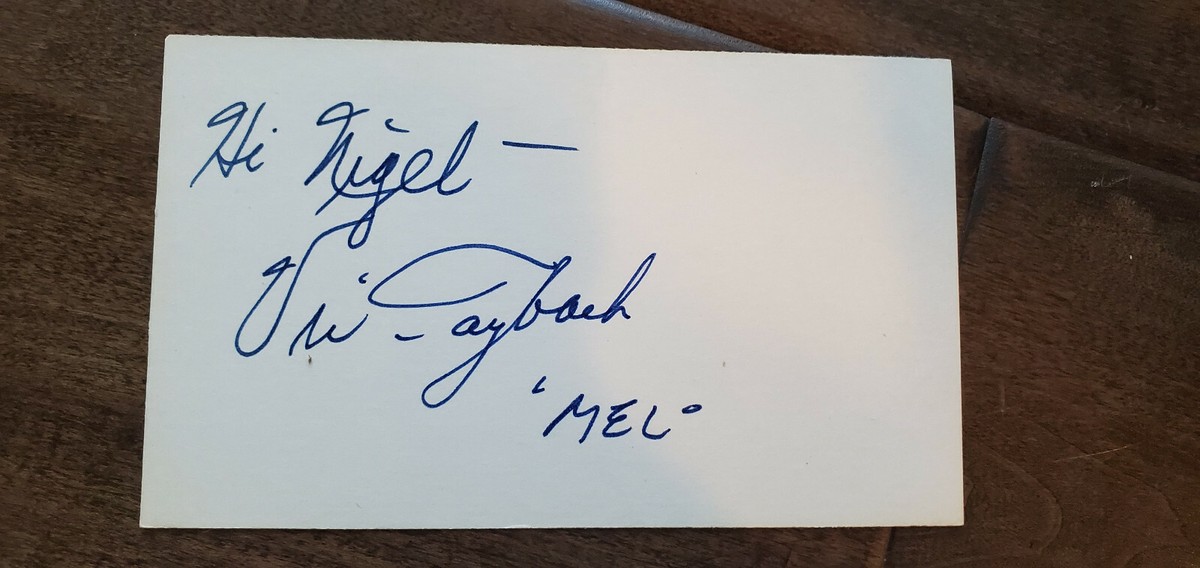 Hi Nigel —
Vic Tayback
"MEL"